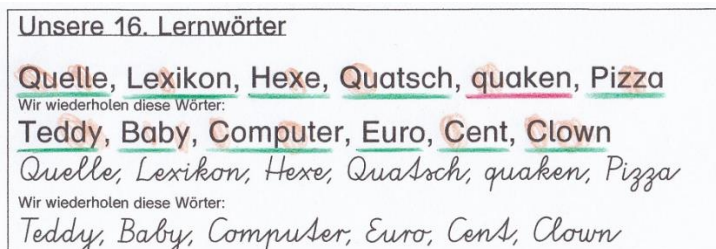 Unsere 16. Lernwörter
Quelle, Lexikon, Hexe, Quatsch, quaken, Pizza
Wir wiederholen diese Wörter:
Teddy, Baby, Computer, Euro, Cent, Clown
Quelle, Lexikon, Hexe, Quatsch, quaken, Pizza
Wir wiederholen diese Wörter:
Teddy, Baby, Computer, Euro, Cent, Clown